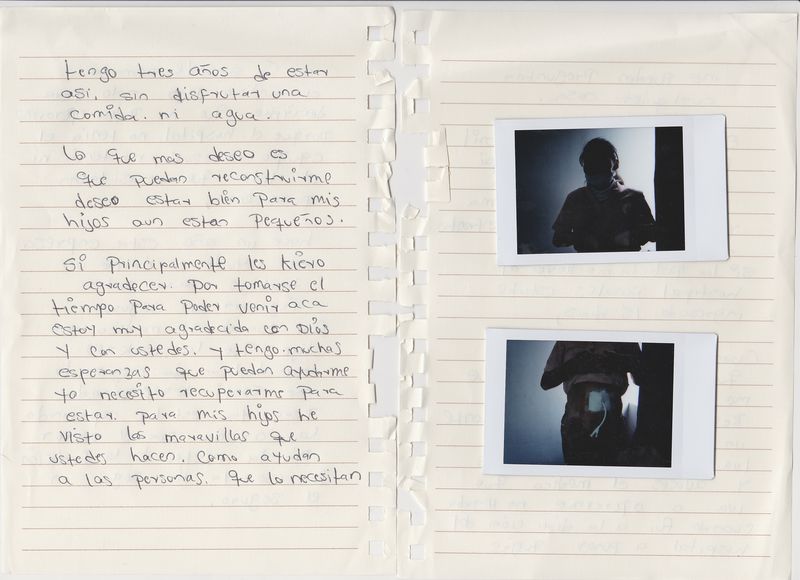 tengo tres años de estar
asi, sin disfrutar una
comida. ni agua.
Lo que mas deseo es
que puedan reconstruirme
deseo estar bien para mis
hijos aun estan pequeños.
Si principalmente les kiero
agradecer. por tomarse el
tiempo para poder venir aca
estoy muy agradecida con Dios
y con ustedes. y tengo muchas
esperanzas que puedan ayudarme
yo necesito recuperarme para
estar. para mis hijos he
visto las maravillas que
ustedes hacen. como ayudan
a las personas. que lo necesitan